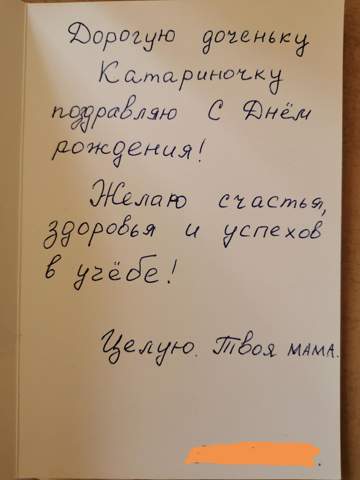 Дорогую доченьку
Катариночку
поздравляю С Днём
рождения!
Желаю счастья,
здоровья и успехов
в учёбе!
Целую. Твоя мама.